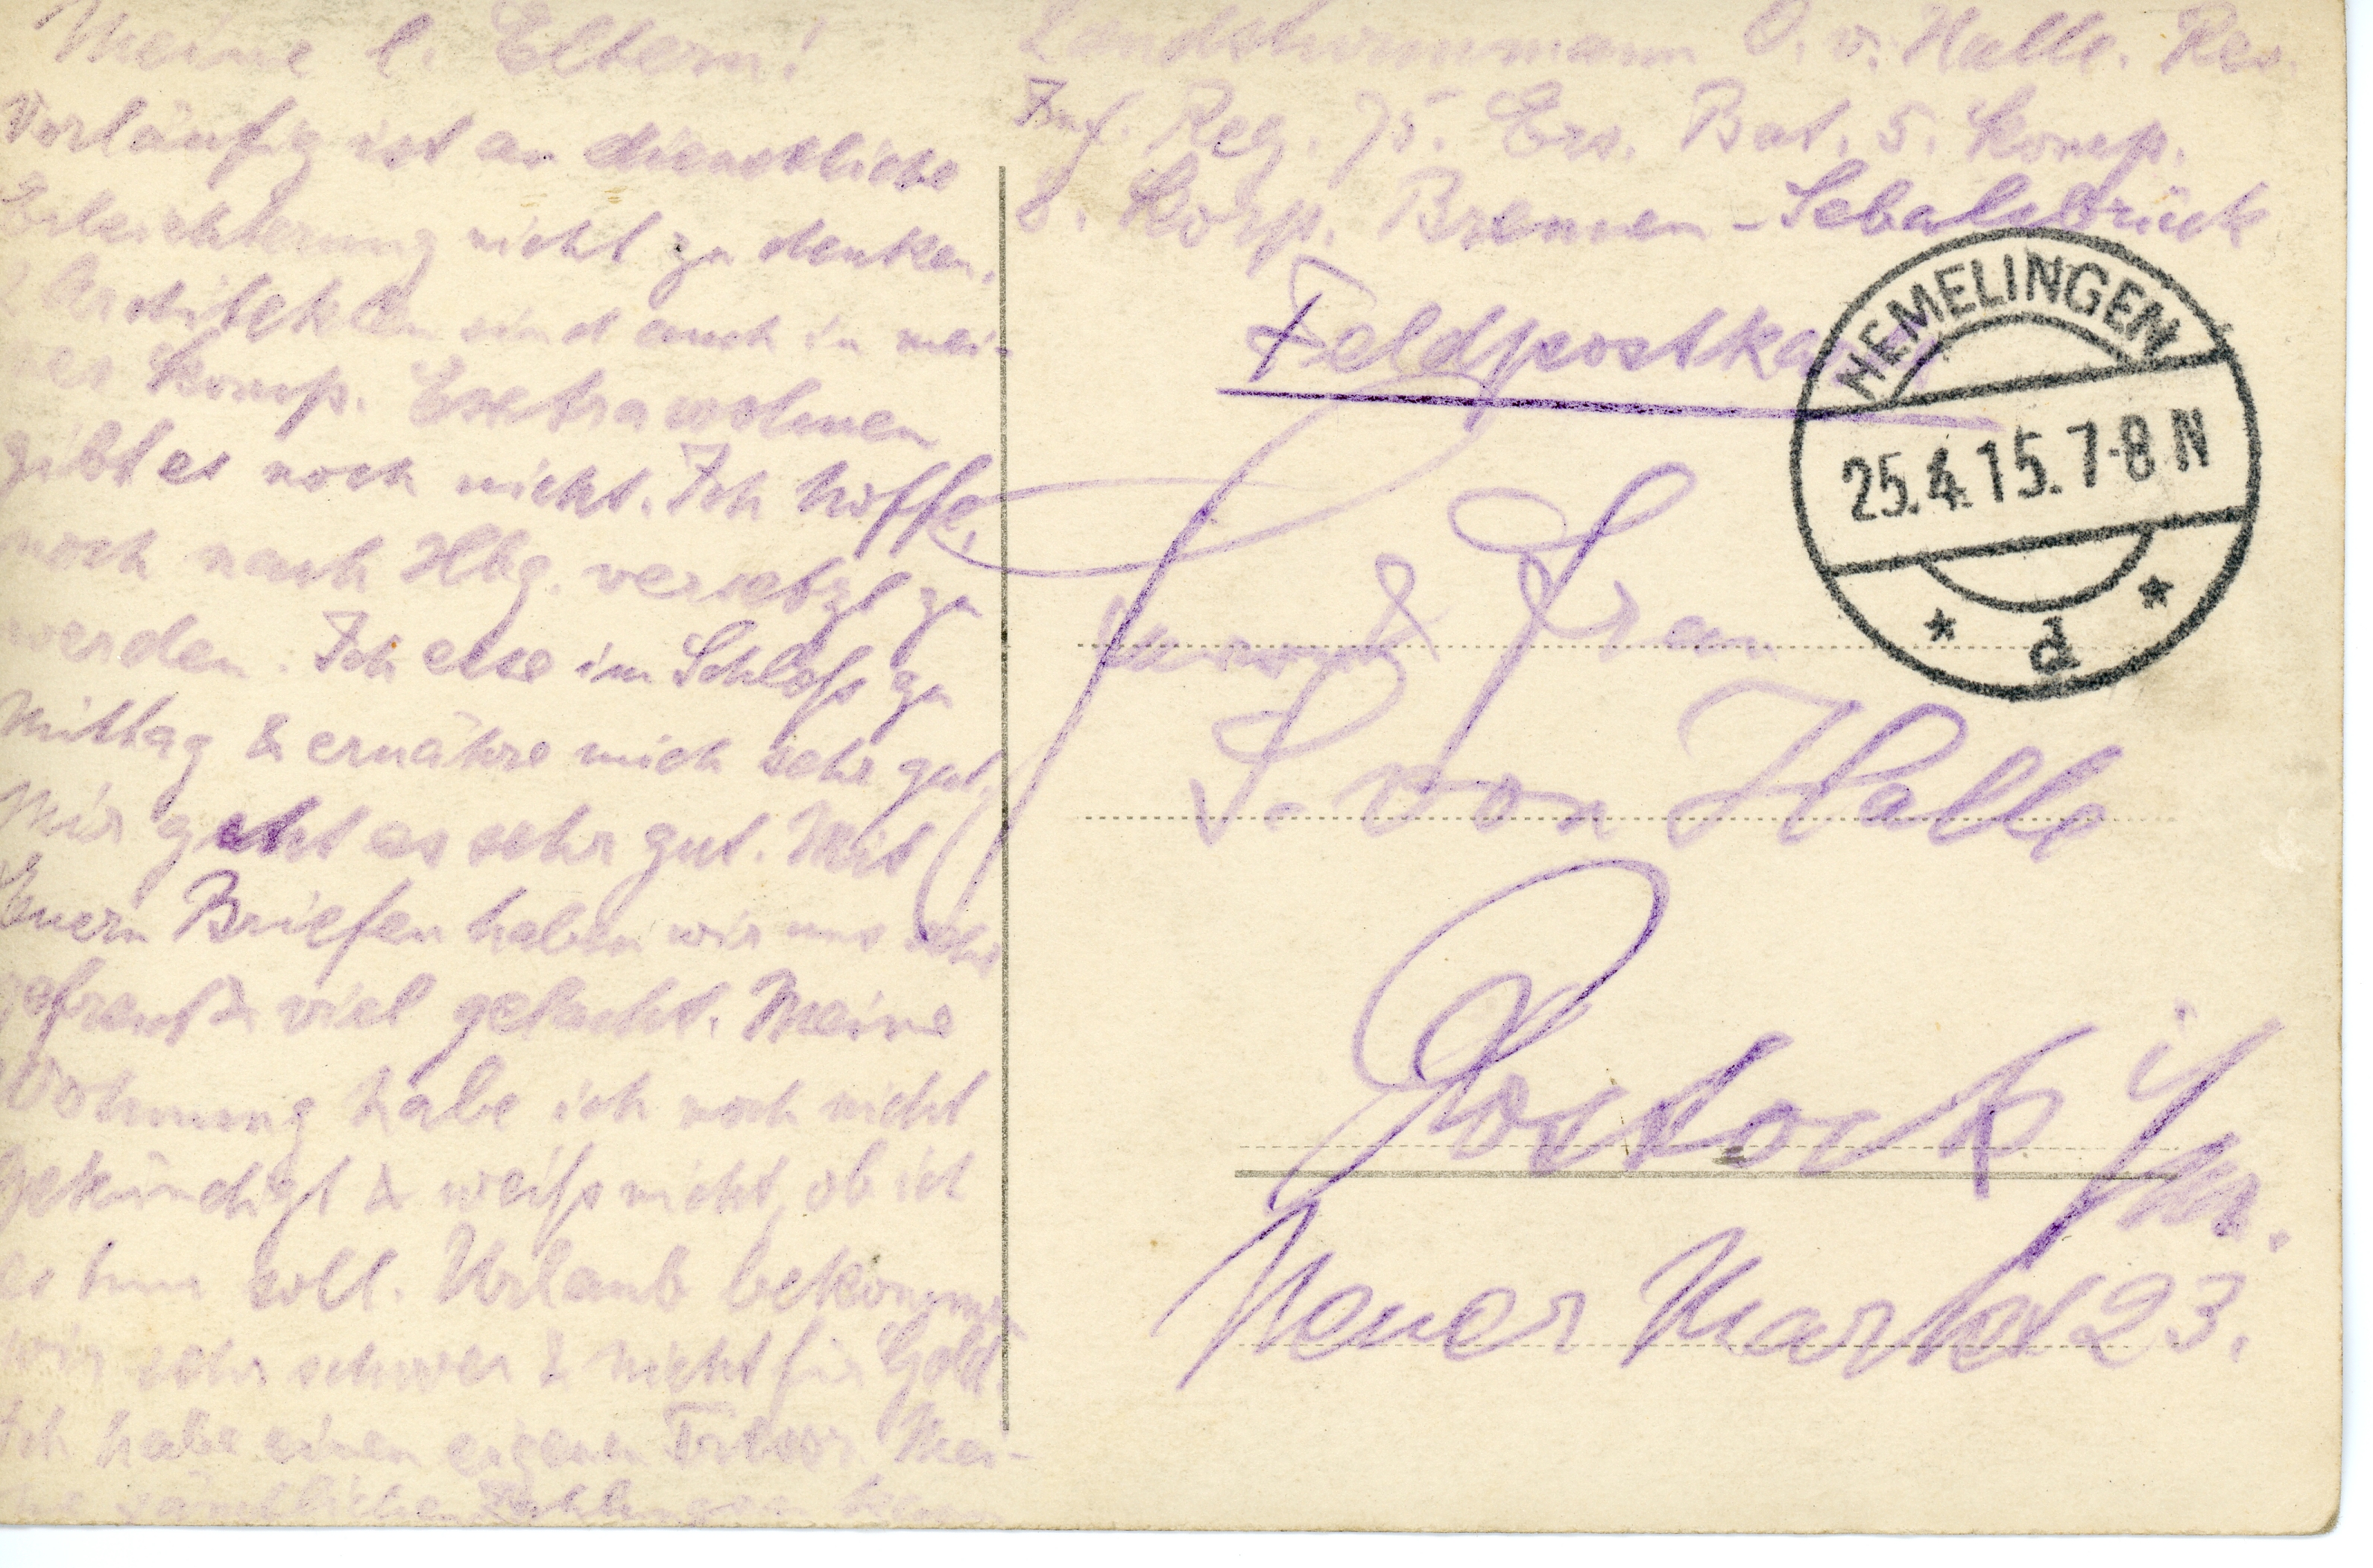 Meine l. Eltern!
Vorläufig ist an dienstliche
Erleichterung nicht zu denken.
Architekten sind auch in mei-
ner Komp. Extrawohnen
gibt es noch nicht. Ich hoffe,
noch nach Hbg. versetzt zu
werden. Ich esse im Schloß zu
Mittag & ernähre mich sehr gut.
Mir geht es sehr gut. Mit
Euern Briefen haben wir uns sehr
gefreut & viel gelacht. Meine
Wohnung habe ich noch nicht
gekündigt & weiß nicht, ob ich
es tun soll. Urlaub bekommen
wir sehr schwer & nicht für Geld.
Ich habe einen eigenen Tresor. Mei-
ne sämtlichen Zahlungen
Landsturmmann O. v. Halle. Res.
Inf. Reg. 75. Ers. Bat. 5. Komp.
8. Korp. Bremen-Sebaldsbrück
Feldpostkarte
HEMELINGEN
25.4.15.7-8 N
* d *
Herrn & Frau
S. von Halle
Rostock i/M.
Neuer Markt 23.